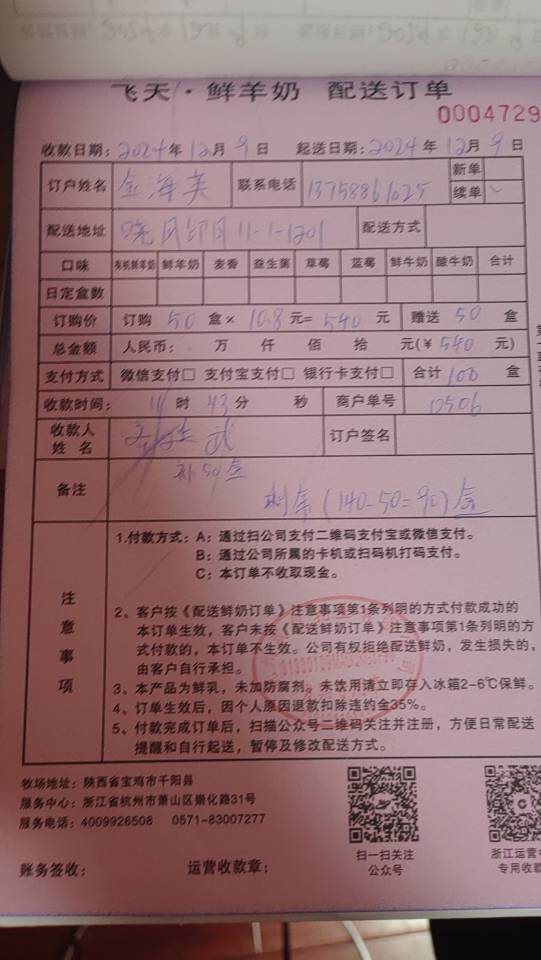 飞天·鲜羊奶 配送订单
0004729
收款日期：2024年12月9日 起送日期：2024年12月9日
订户姓名 金海英 联系电话 13758861025 新单
续单 ✓
配送地址 晓风印月11-1-1201 配送方式
口味 有机鲜羊奶 鲜羊奶 麦香 益生菌 草莓 蓝莓 鲜牛奶 酸牛奶 合计
日定盒数
订购价 订购 50 盒× 10.8 元= 540 元 赠送 50 盒
总金额 人民币： 万 仟 佰 拾 元(¥ 540 元)
支付方式 微信支付□ 支付宝支付□ 银行卡支付□ 合计 100 盒
收款时间： 14 时 43 分 秒 商户单号 12506
收款人
姓 名 武 订户签名
补50盒
备注 剩余(140-50=90)盒
注意事项
1.付款方式：A：通过扫公司支付二维码支付宝或微信支付。
B：通过公司所属的卡机或扫码机打码支付。
C：本订单不收取现金。
2、客户按《配送鲜奶订单》注意事项第1条列明的方式付款成功的
本订单生效，客户未按《配送鲜奶订单》注意事项第1条列明的方
式付款的，本订单不生效。公司有权拒绝配送鲜奶，发生损失的，
由客户自行承担。
3、本产品为鲜乳，未加防腐剂。未饮用请立即存入冰箱2-6℃保鲜。
4、订单生效后，因个人原因退款扣除违约金35%。
5、付款完成订单后，扫描公众号二维码关注并注册，方便日常配送
提醒和自行起送，暂停及修改配送方式。
牧场地址：陕西省宝鸡市千阳县
服务中心：浙江省杭州市萧山区崇化路31号
服务电话：4009926508 0571-83007277
扫一扫关注
公众号
浙江运营
专用收款
账务签收： 运营收款章：